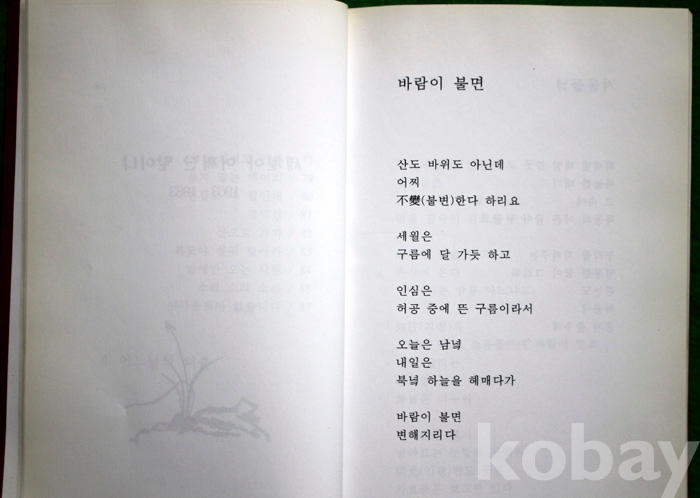 바람이 불면
산도 바위도 아닌데
어찌
不變(불변)한다 하리요
세월은
구름에 달 가듯 하고
인심은
허공 중에 뜬 구름이라서
오늘은 남녘
내일은
북녘 하늘을 헤매다가
바람이 불면
변해지리다
kobay